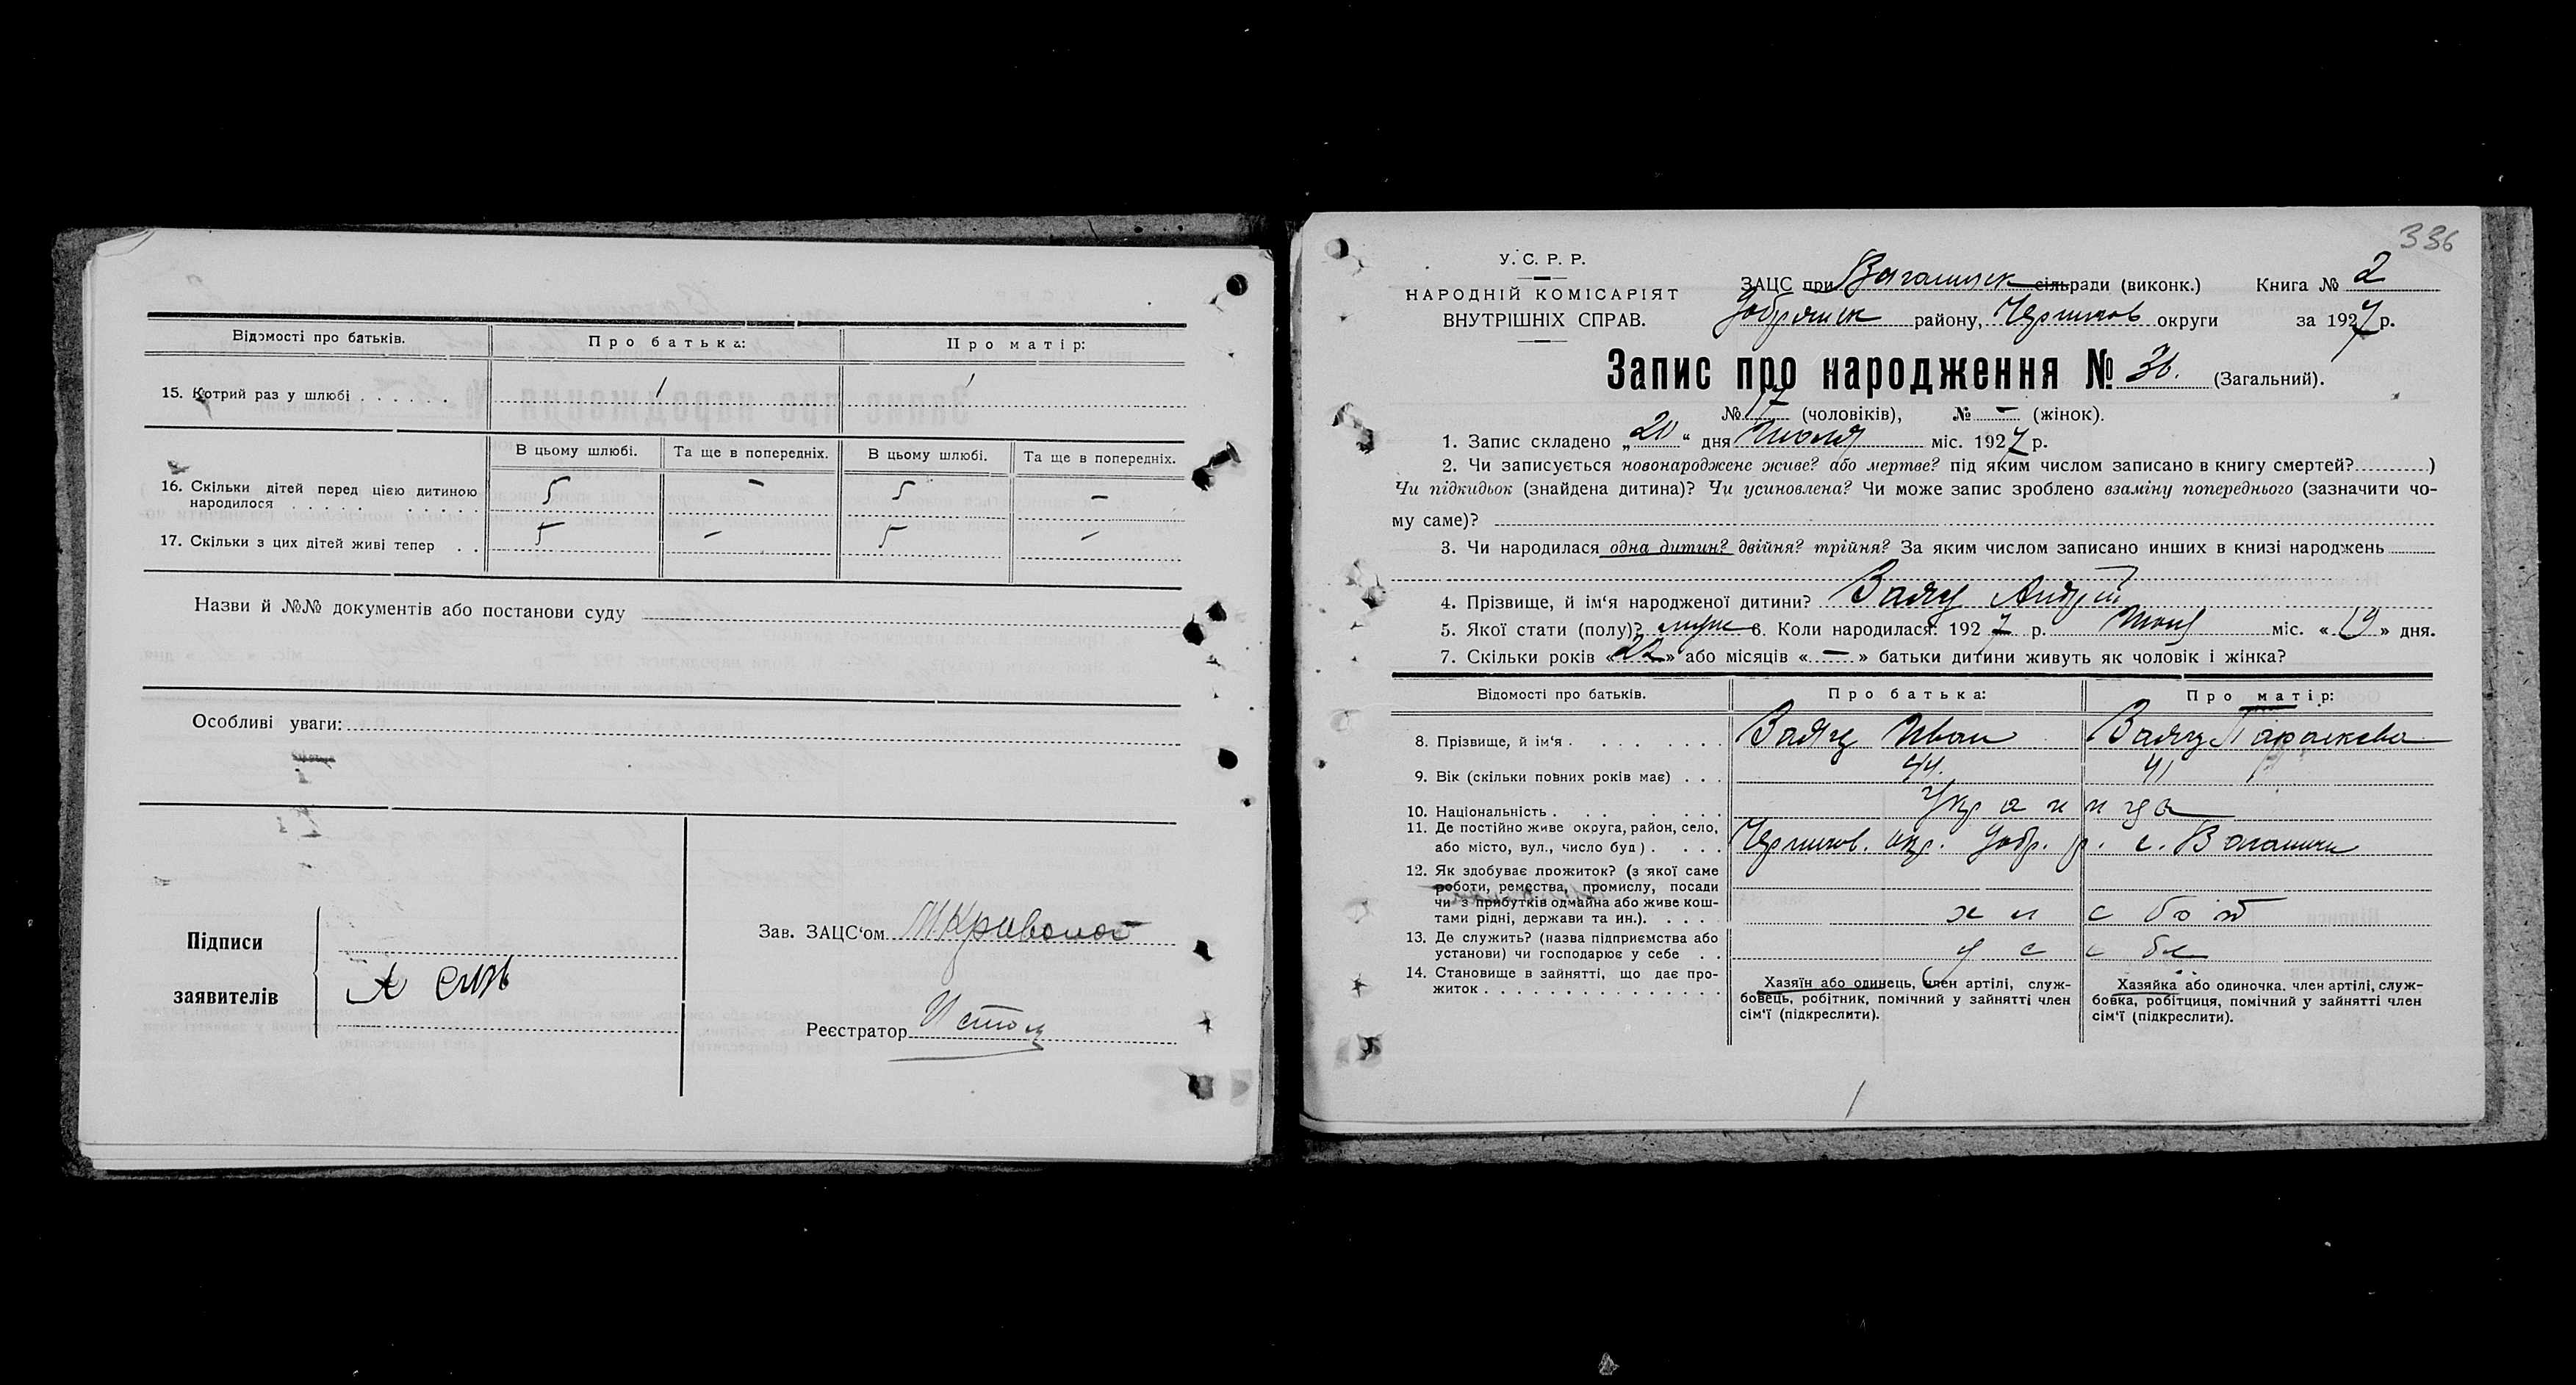 Відомості про батьків. Про батька: Про матір:
15. Котрий раз у шлюбі . . . . . . 1 1
В цьому шлюбі. Та ще в попередніх. В цьому шлюбі. Та ще в попередніх.
16. Скільки дітей перед цією дитиною
народилося . . . . . . . . . . 5 – 5 –
17. Скільки з цих дітей живі тепер . . 5 – 5 –
Назви й №№ документів або постанови суду
Особливі уваги:
Підписи
заявителів
Зав. ЗАЦС‘ом
Реєстратор
336
У. С. Р. Р.
НАРОДНІЙ КОМІСАРІЯТ
ВНУТРІШНІХ СПРАВ.
ЗАЦС при сільради (виконк.) Книга № 2
району, Черниговʼ округи за 1927 р.
Запис про народження № 36. (Загальний).
№ 17 (чоловіків), № – (жінок).
1. Запис складено „20“ дня Июля міс. 1927 р.
2. Чи записується новонароджене живе? або мертве? під яким числом записано в книгу смертей? )
Чи підкидьок (знайдена дитина)? Чи усиновлена? Чи може запис зроблено взаміну попереднього (зазначити чо-
му саме)?
3. Чи народилася одна дитин? двійня? трійня? За яким числом записано инших в книзі народжень
4. Прізвище, й ім‘я народженої дитини? Заяц Андрій
5. Якої стати (полу)? муж 6. Коли народилася: 1927 р. Июля міс. «19» дня.
7. Скільки років «22» або місяців «–» батьки дитини живуть як чоловік і жінка?
Відомості про батьків. Про батька: Про матір:
8. Прізвище, й ім‘я . . . . . . . . Заяц Иван Заяц Параскева
9. Вік (скільки повних років має) . . . 44. 41
10. Національність . . . . . . . Украинца
11. Де постійно живе округа, район, село,
або місто, вул., число буд) . . . . Чернигов. окр. р. с.
12. Як здобуває прожиток? (з якої саме
роботи, ремества, промислу, посади
чи з прибутків одмайна або живе кош-
тами рідні, держави та ин.). . . . . хлебоп
13. Де служить? (назва підприємства або
установи) чи господарює у себе . . у себе
14. Становище в зайнятті, що дає про-
житок . . . . . . . . . . . . . . .
Хазяїн або одинець, член артілі, служ-
бовець, робітник, помічний у зайнятті член
сім‘ї (підкреслити).
Хазяйка або одиночка. член артілі, служ-
бовка, робітциця, помічний у зайнятті член
сім‘ї (підкреслити).